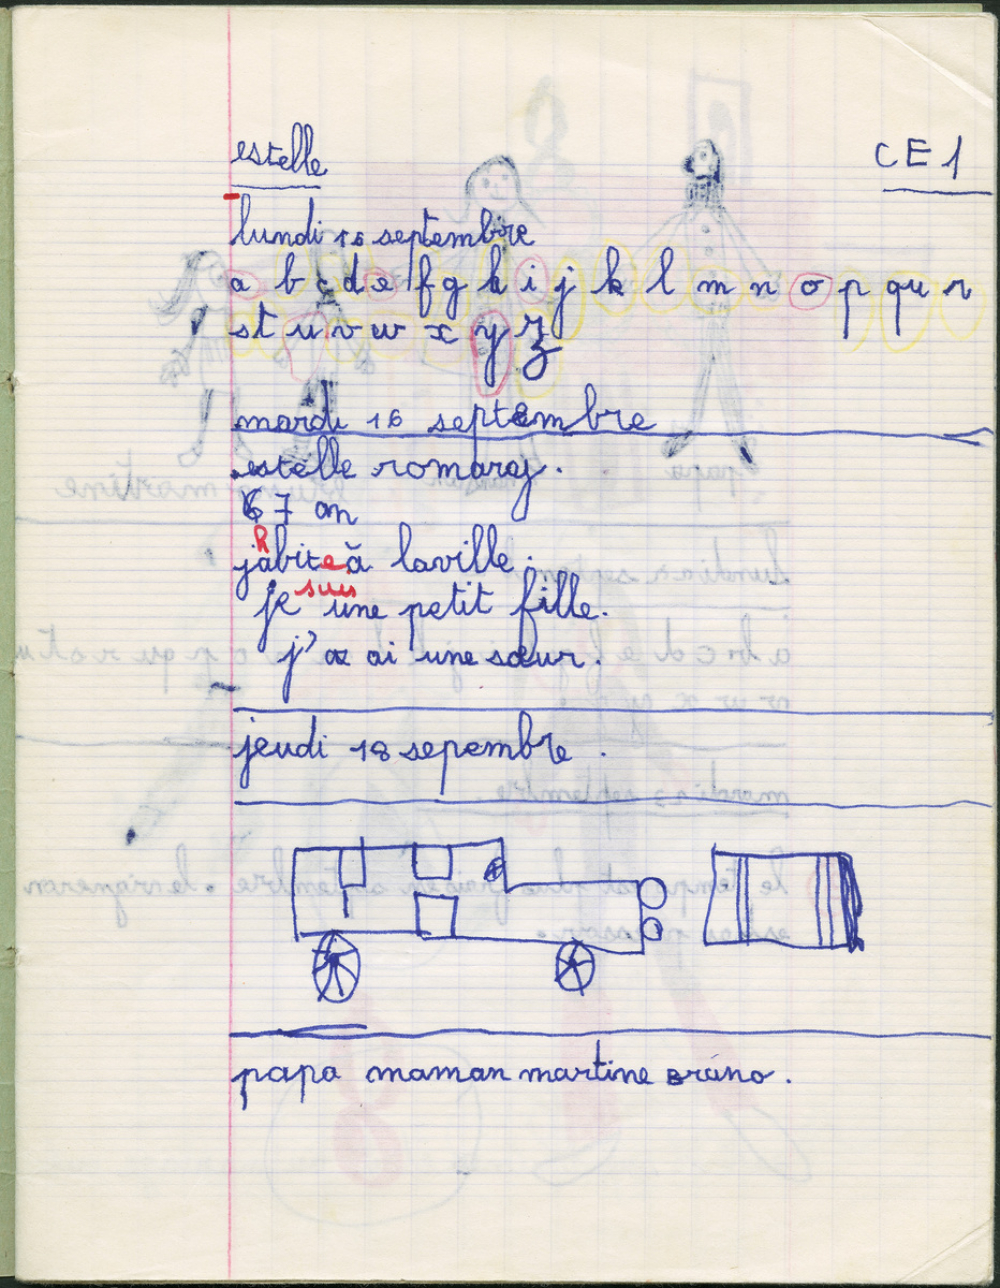 estelle CE1
lundi 15 septembre
a b c d e f g h i j k l m n o p qu r
s t u v w x y z
mardi 16 septembre
estelle romaraj.
7 an
jhabite à laville.
je suis une petit fille.
j' ai une sœur.
jeudi 18 sepembre.
papa maman martine Bruno.